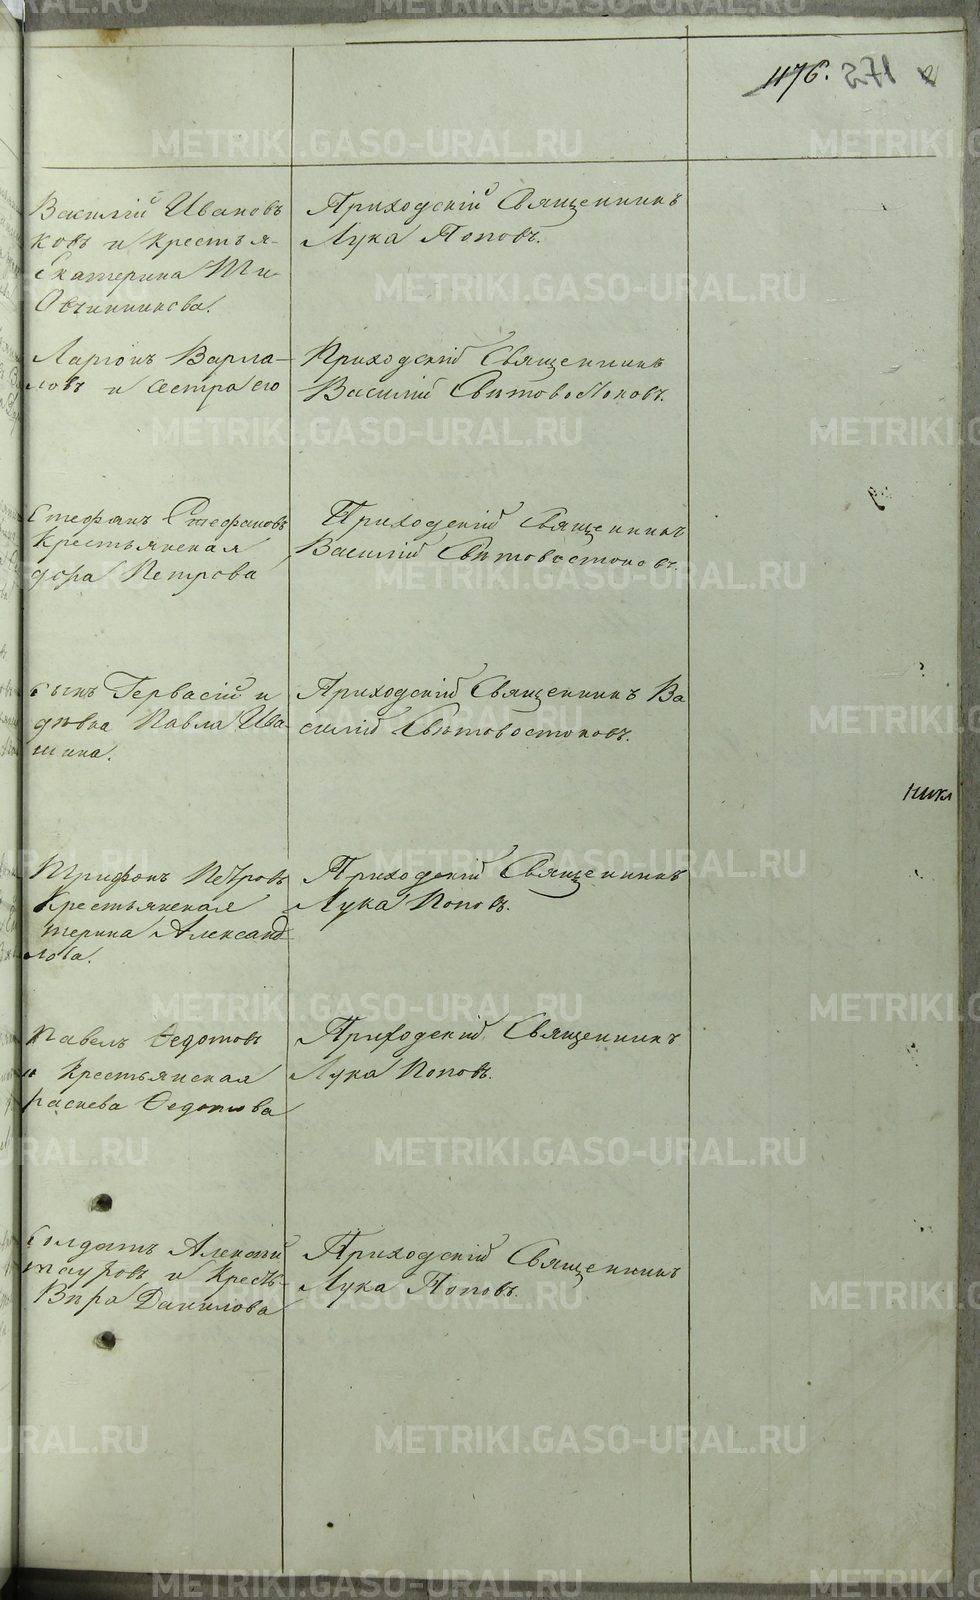 476.
Василій Ивановъ
ковъ и крестья-
Екатерина Ти-
Овчинникова.
Приходскій Священникъ
Лука Поповъ.
Ларіонъ Варла-
ловъ и сестра его
Приходскій Священникъ
Василій Свѣтовостоковъ.
Стефанъ Стефановъ
Крестьянская
дора Петрова
Приходскій Священникъ
Василій Свѣтовостоковъ.
сынъ Гервасій и
дѣвка Павла Ива-
шина.
Приходскій Священникъ Ва
силій Свѣтовостоковъ.
никл
Трифонъ Петровъ
Крестьянская
терина Александ
лова.
Приходскій Священникъ
Лука Поповъ.
Павелъ Ѳедотовъ
и Крестьянская
раскева Ѳедотова
Приходскій Священникъ
Лука Поповъ.
Солдатъ Алексѣй
тауровъ и Кресть-
Вѣра Данилова
Приходскій Священникъ
Лука Поповъ.
METRIKI.GASO-URAL.RU